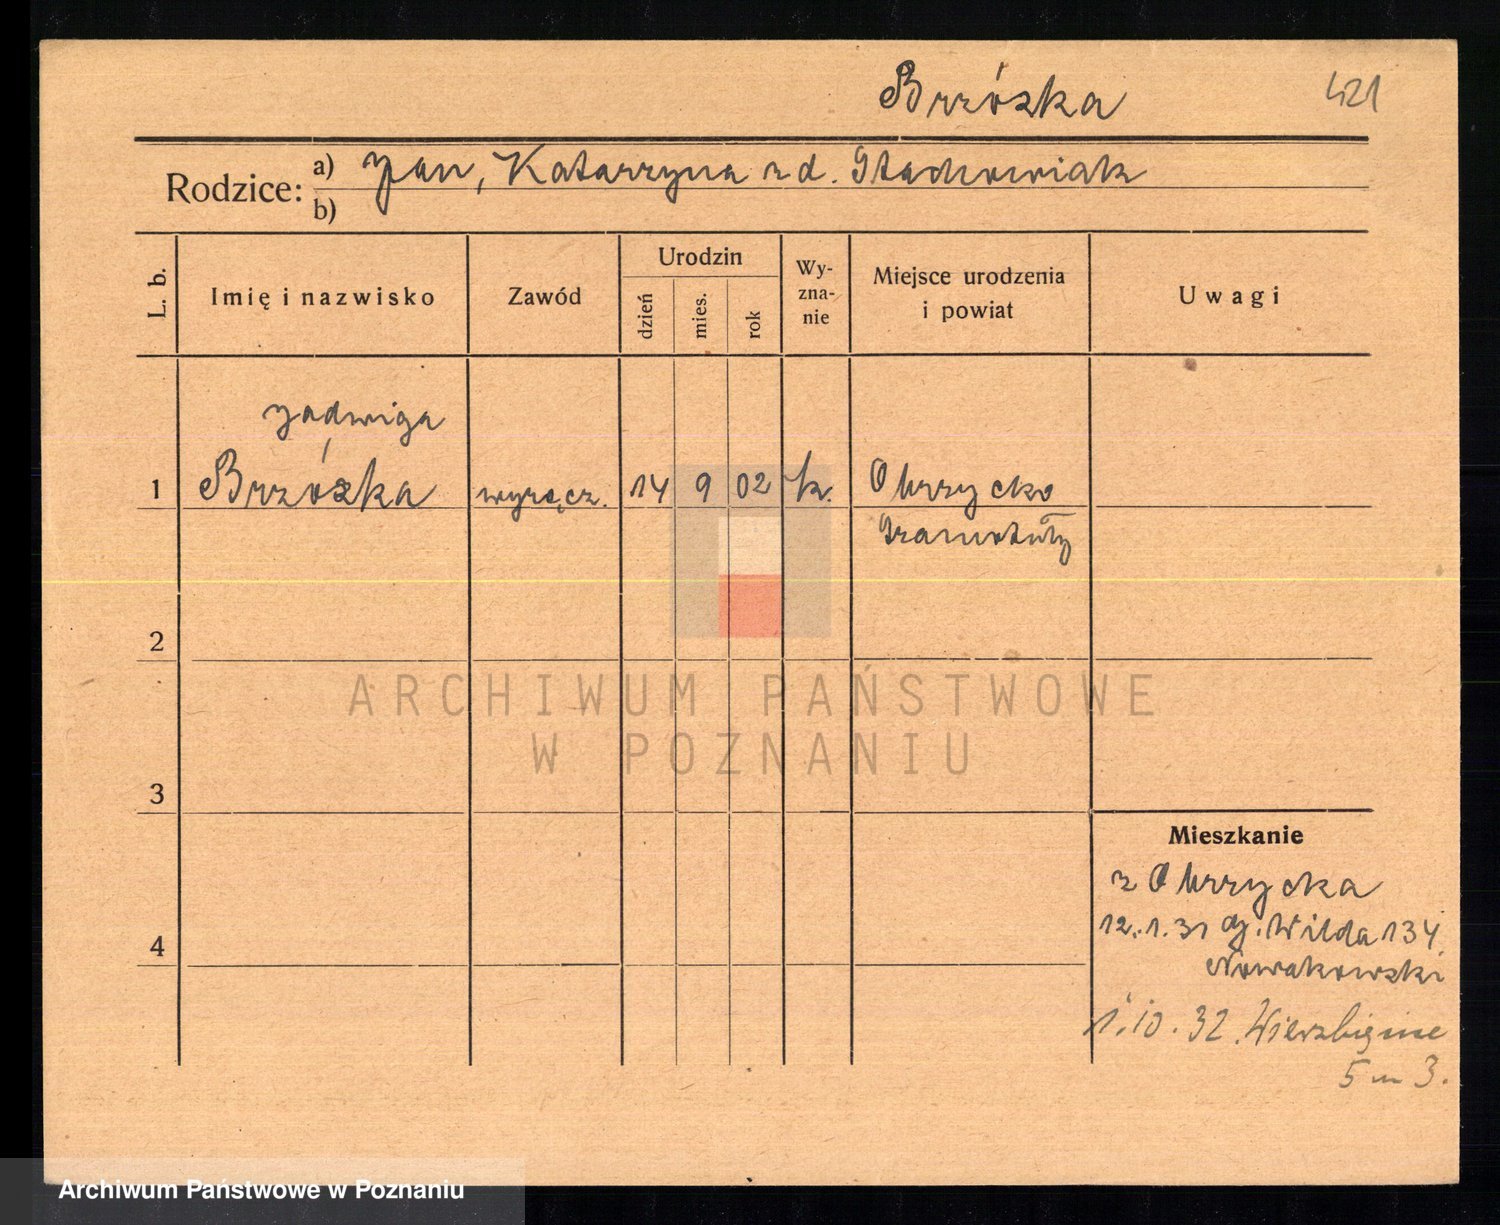 Brzózka 421
Rodzice: a) Jan, Katarzyna zd. Stachowiak
b)
L. b. Imię i nazwisko Zawód Urodzin dzień mies. rok Wyzna-nie Miejsce urodzenia i powiat Uwagi
Jadwiga
1 Brzózka wyręcz. 14 9 02 k. Obrzycko
Szamotuły
2
ARCHIWUM PAŃSTWOWE
W POZNANIU
3
Mieszkanie
z Obrzycka
12.1.31 g. Wilda 134
4
Nowakowski
1.10.32. Wierzbięcice
5 m 3.
Archiwum Państwowe w Poznaniu